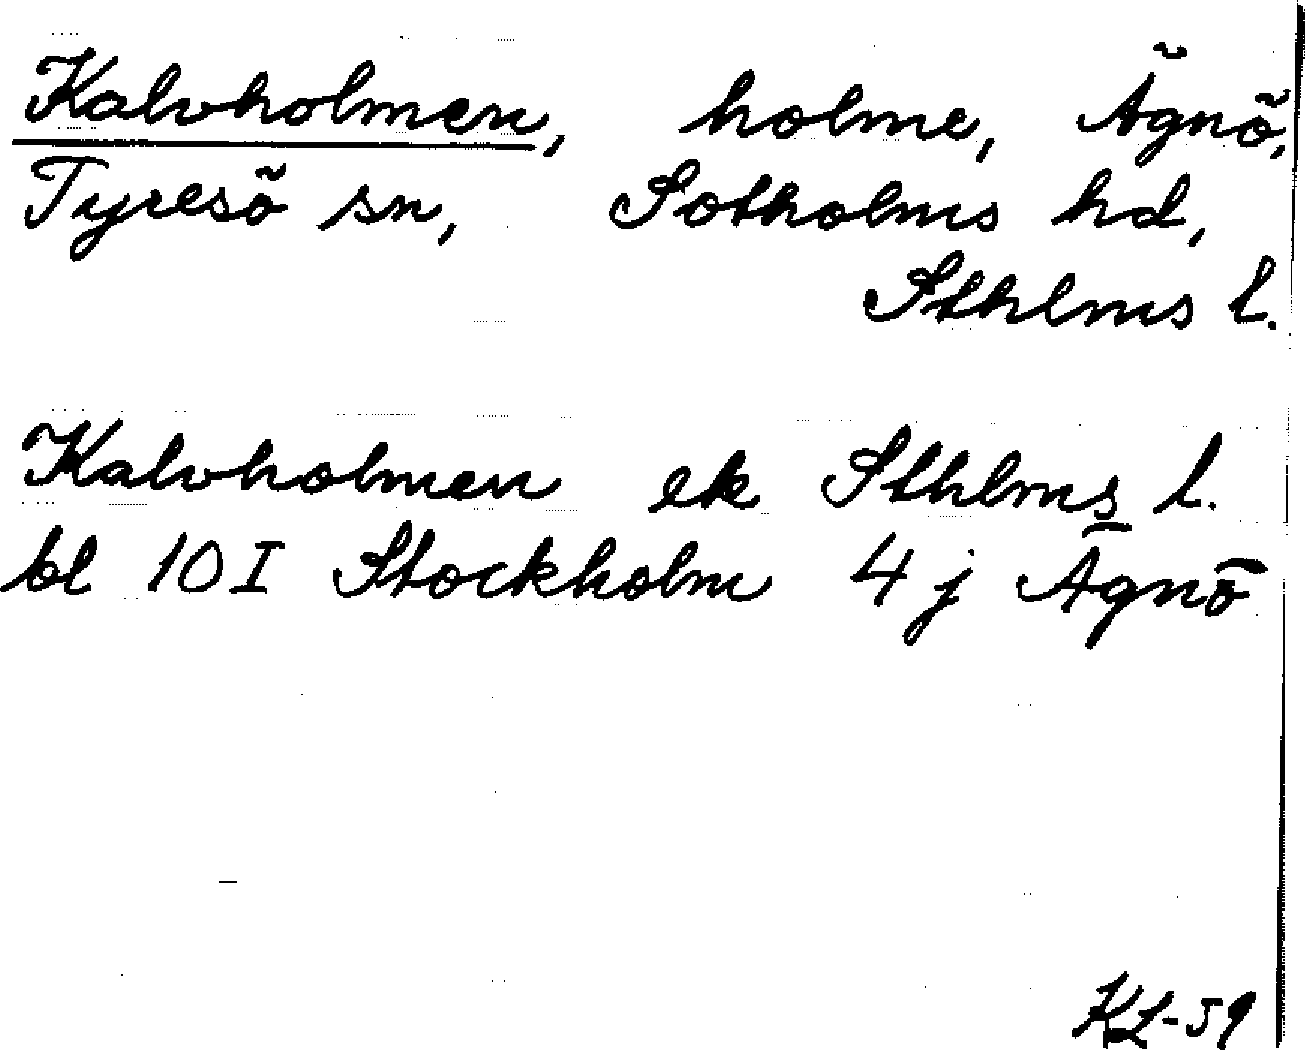 Kalvholmen, holme, Ägnö,
Tyresö sn, Sotholms hd,
Sthlms l.
Kalvholmen ek Sthlms l.
bl 10 I Stockholm 4 j Ägnö
KL-59